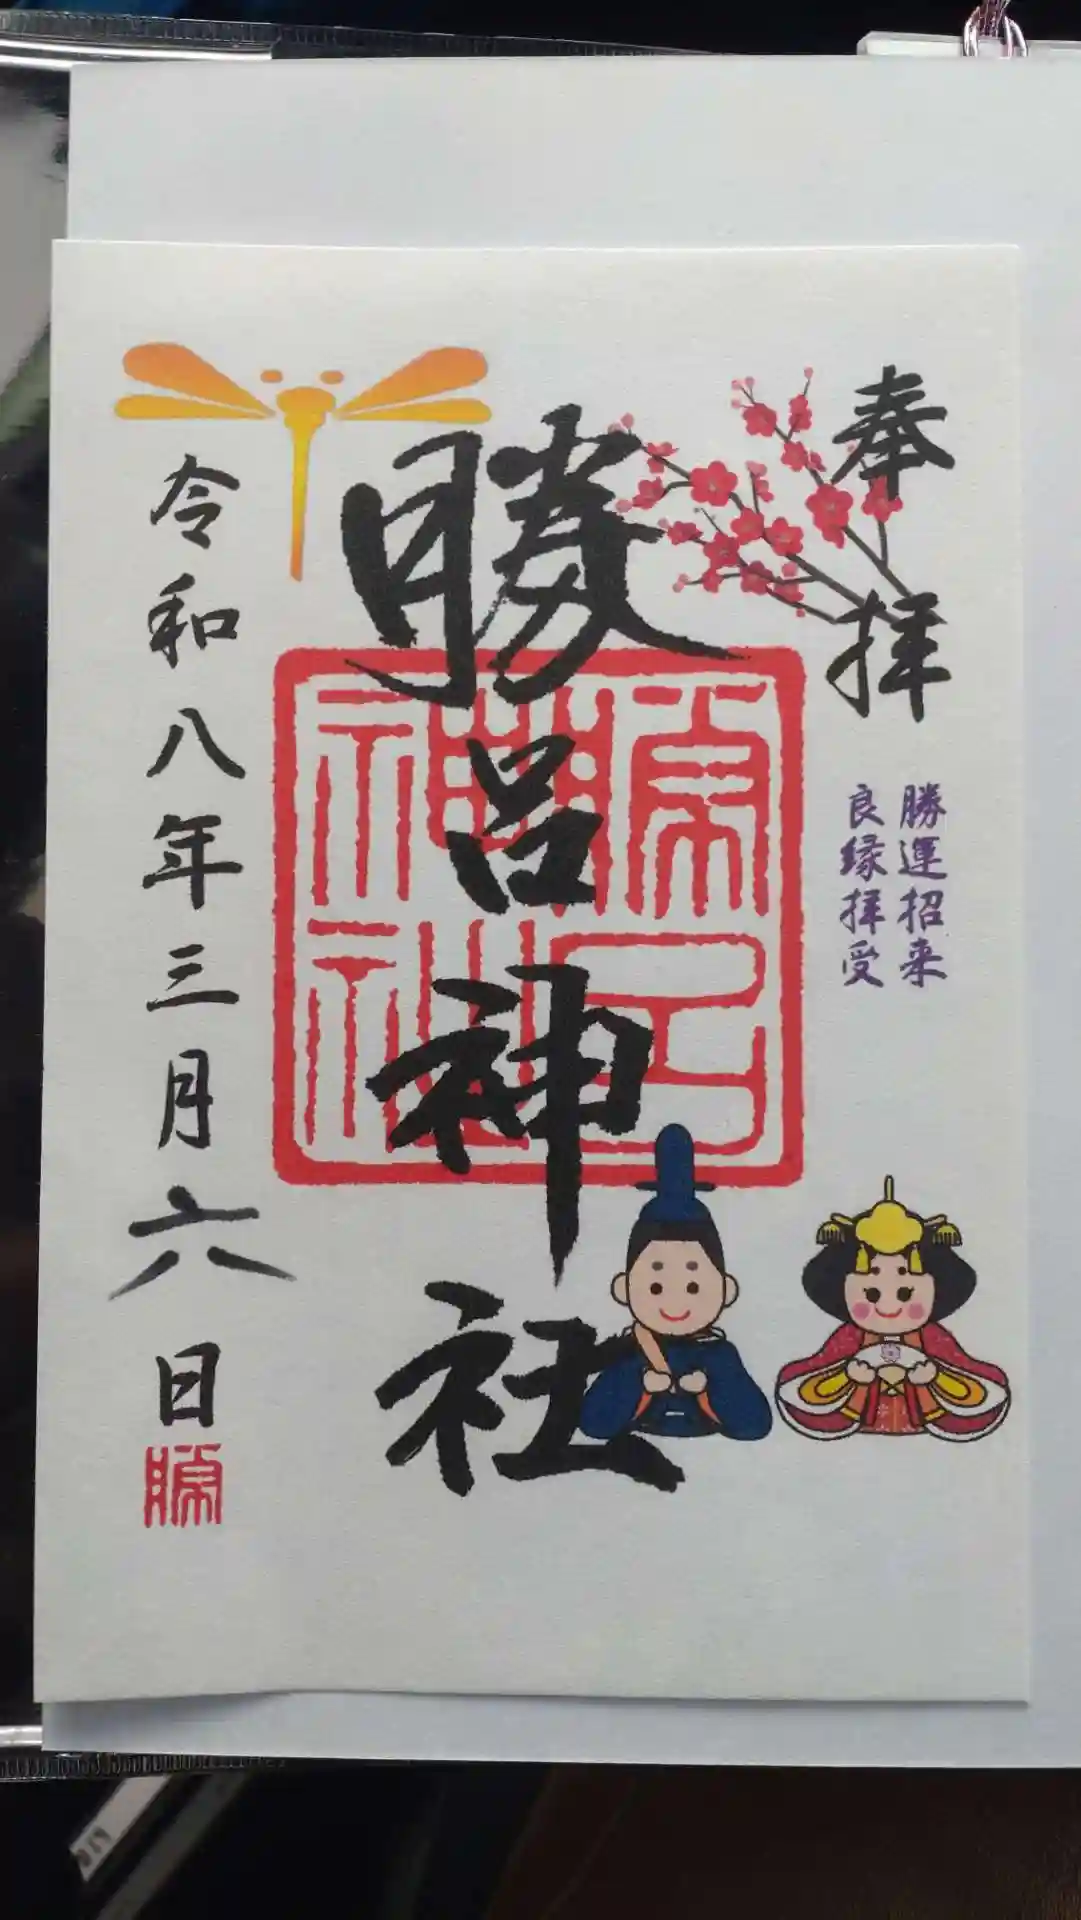 奉拝
勝運招来
良縁拝受
勝呂神社
勝呂神社
令和八年三月六日
勝